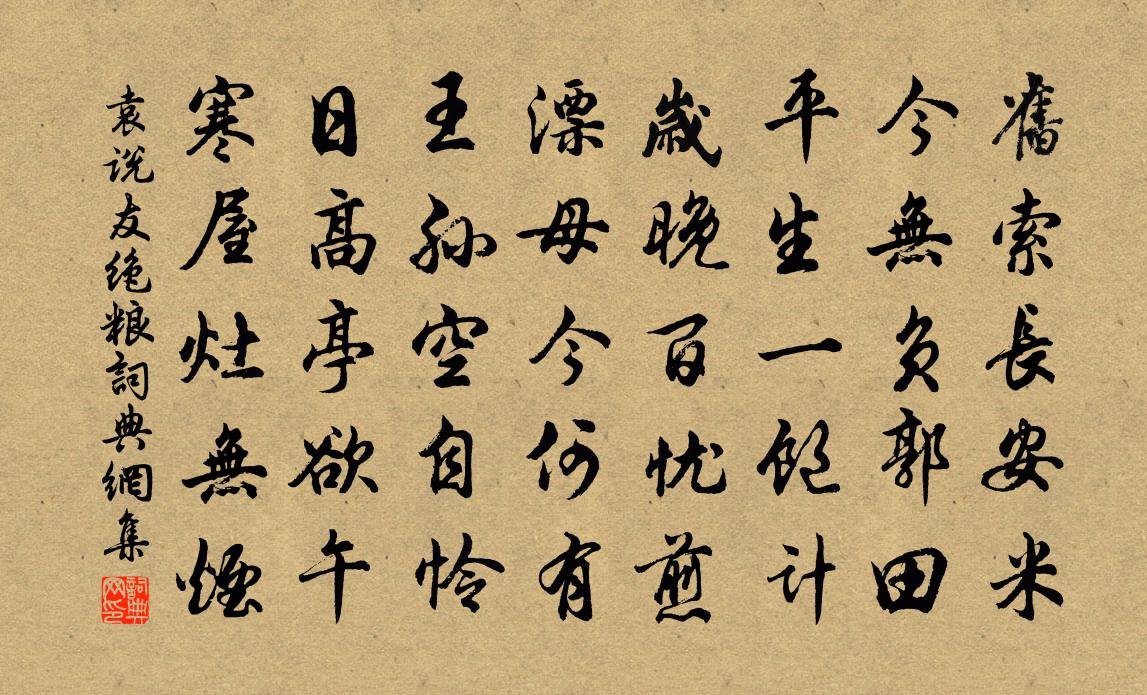 舊索長安米
今無負郭田
平生一飽計
歲晚百忧煎
漂母今何有
王孫空自怜
日高亭欲午
寒屋灶無煙
袁说友绝粮詞典網集
詞典网印